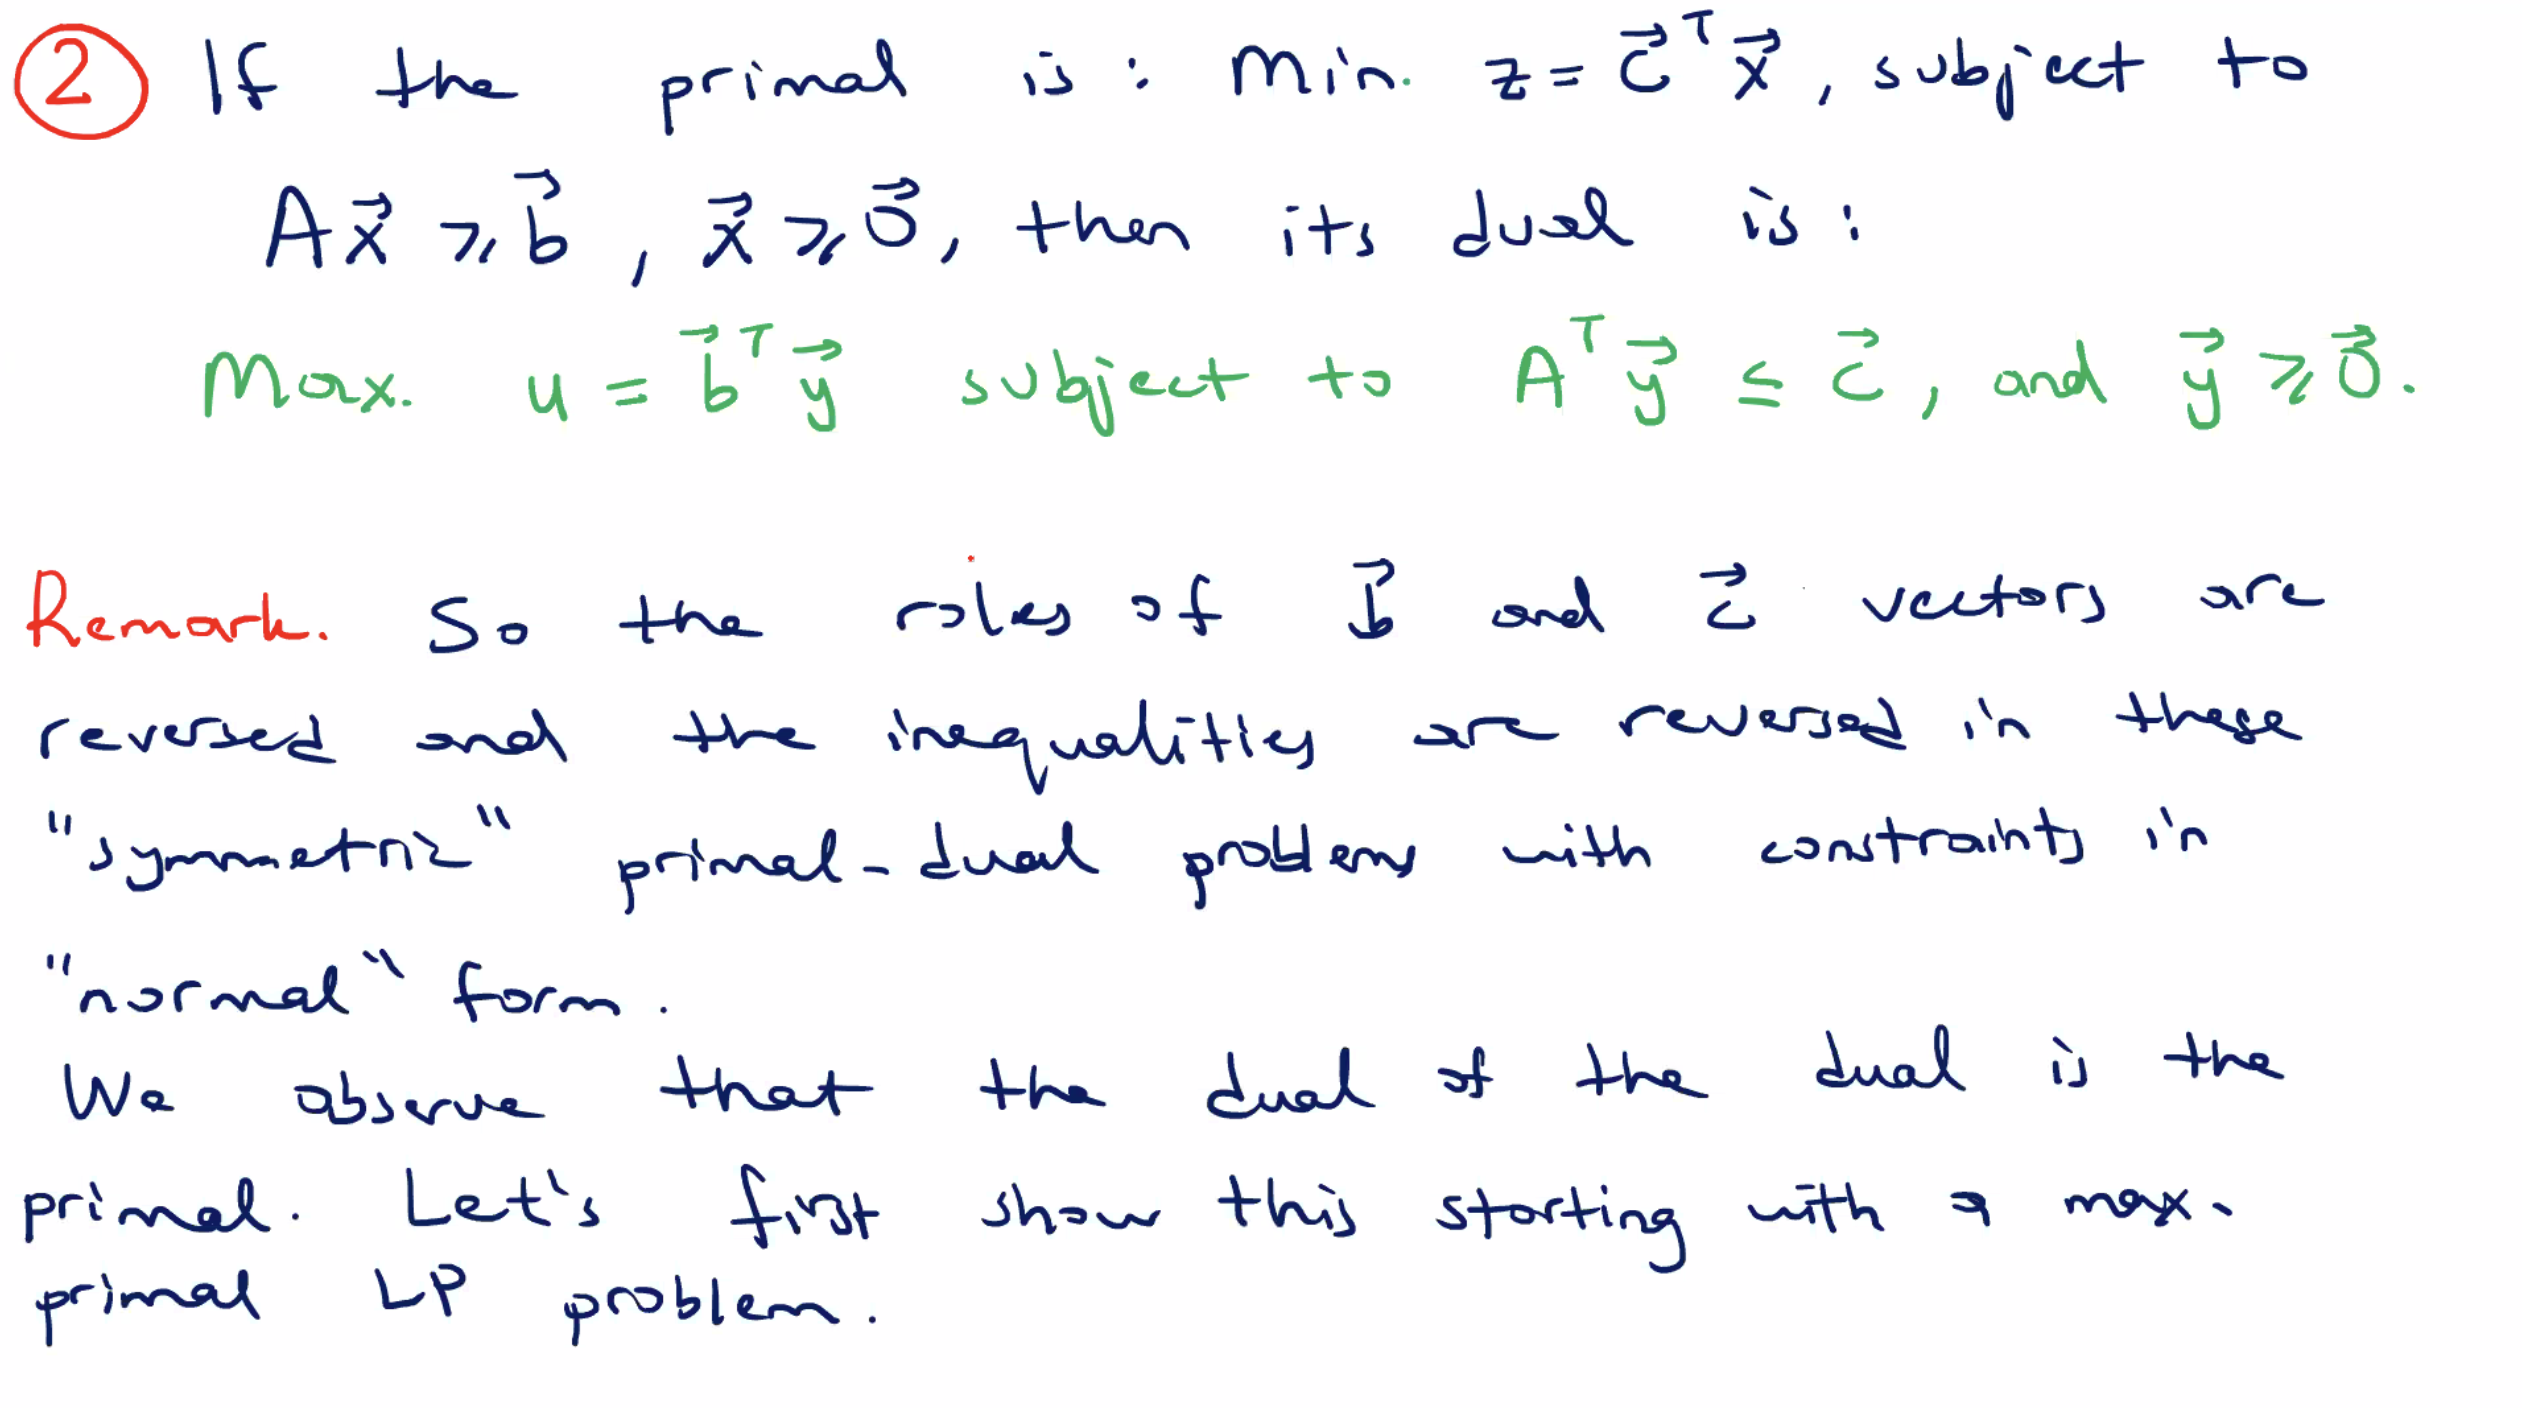 ② If the primal is : Min. z = c⃗ᵀ x⃗ , subject to
A x⃗ ⩾ b⃗ , x⃗ ⩾ 0⃗ , then its dual is :
Max. u = b⃗ᵀ y⃗ subject to Aᵀ y⃗ ≤ c⃗ , and y⃗ ⩾ 0⃗ .
Remark. So the roles of b⃗ and c⃗ vectors are
reversed and the inequalities are reversed in these
"symmetric" primal-dual problems with constraints in
"normal" form .
We observe that the dual of the dual is the
primal. Let's first show this starting with a max.
primal LP problem.